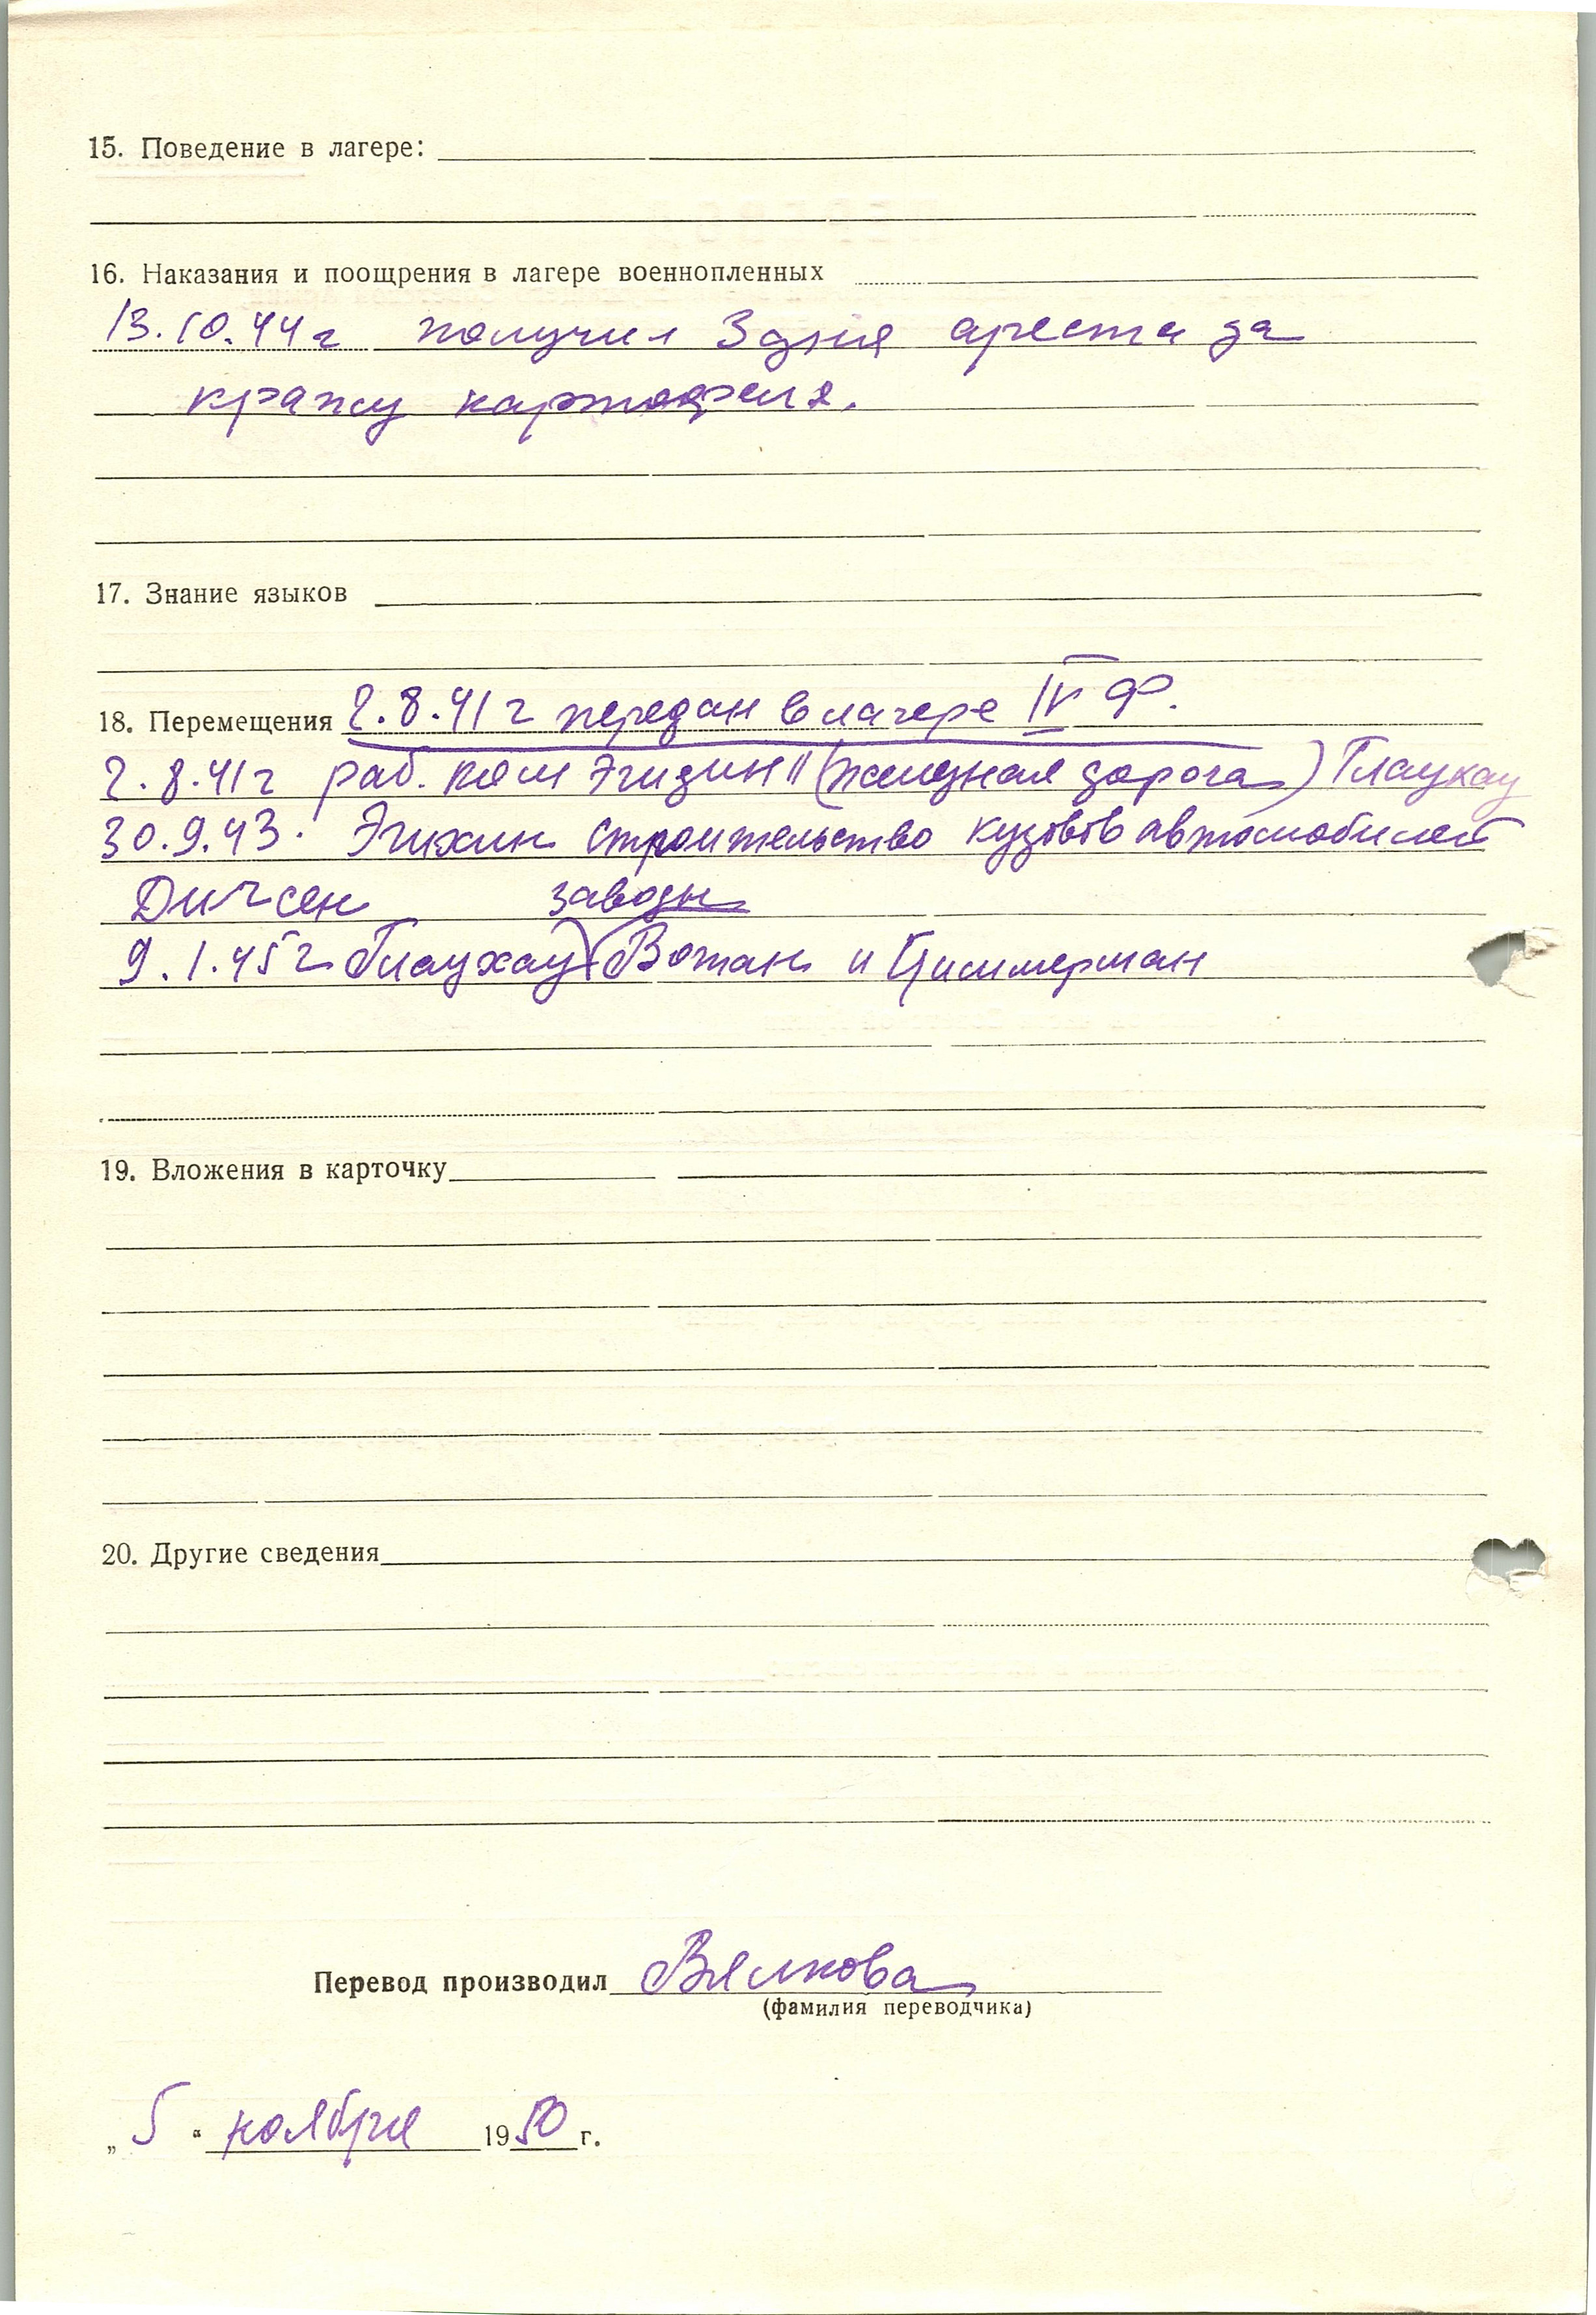 15. Поведение в лагере:
16. Наказания и поощрения в лагере военнопленных
13.10.44 г получил 3 дня ареста за
кражу картофеля.
17. Знание языков
18. Перемещения 2.8.41 г передан в лагере IV Ф.
2.8.41 г раб. ком Эгидин II (железная дорога) Глаухау
30.9.43. Эгихин строительство кузовов автомобилей
Дитсен заводы
9.1.45 г Глаухау (Вотан и Циммерман
19. Вложения в карточку
20. Другие сведения
Перевод производил Вялкова
(фамилия переводчика)
„ 5 “ ноября 1950 г.